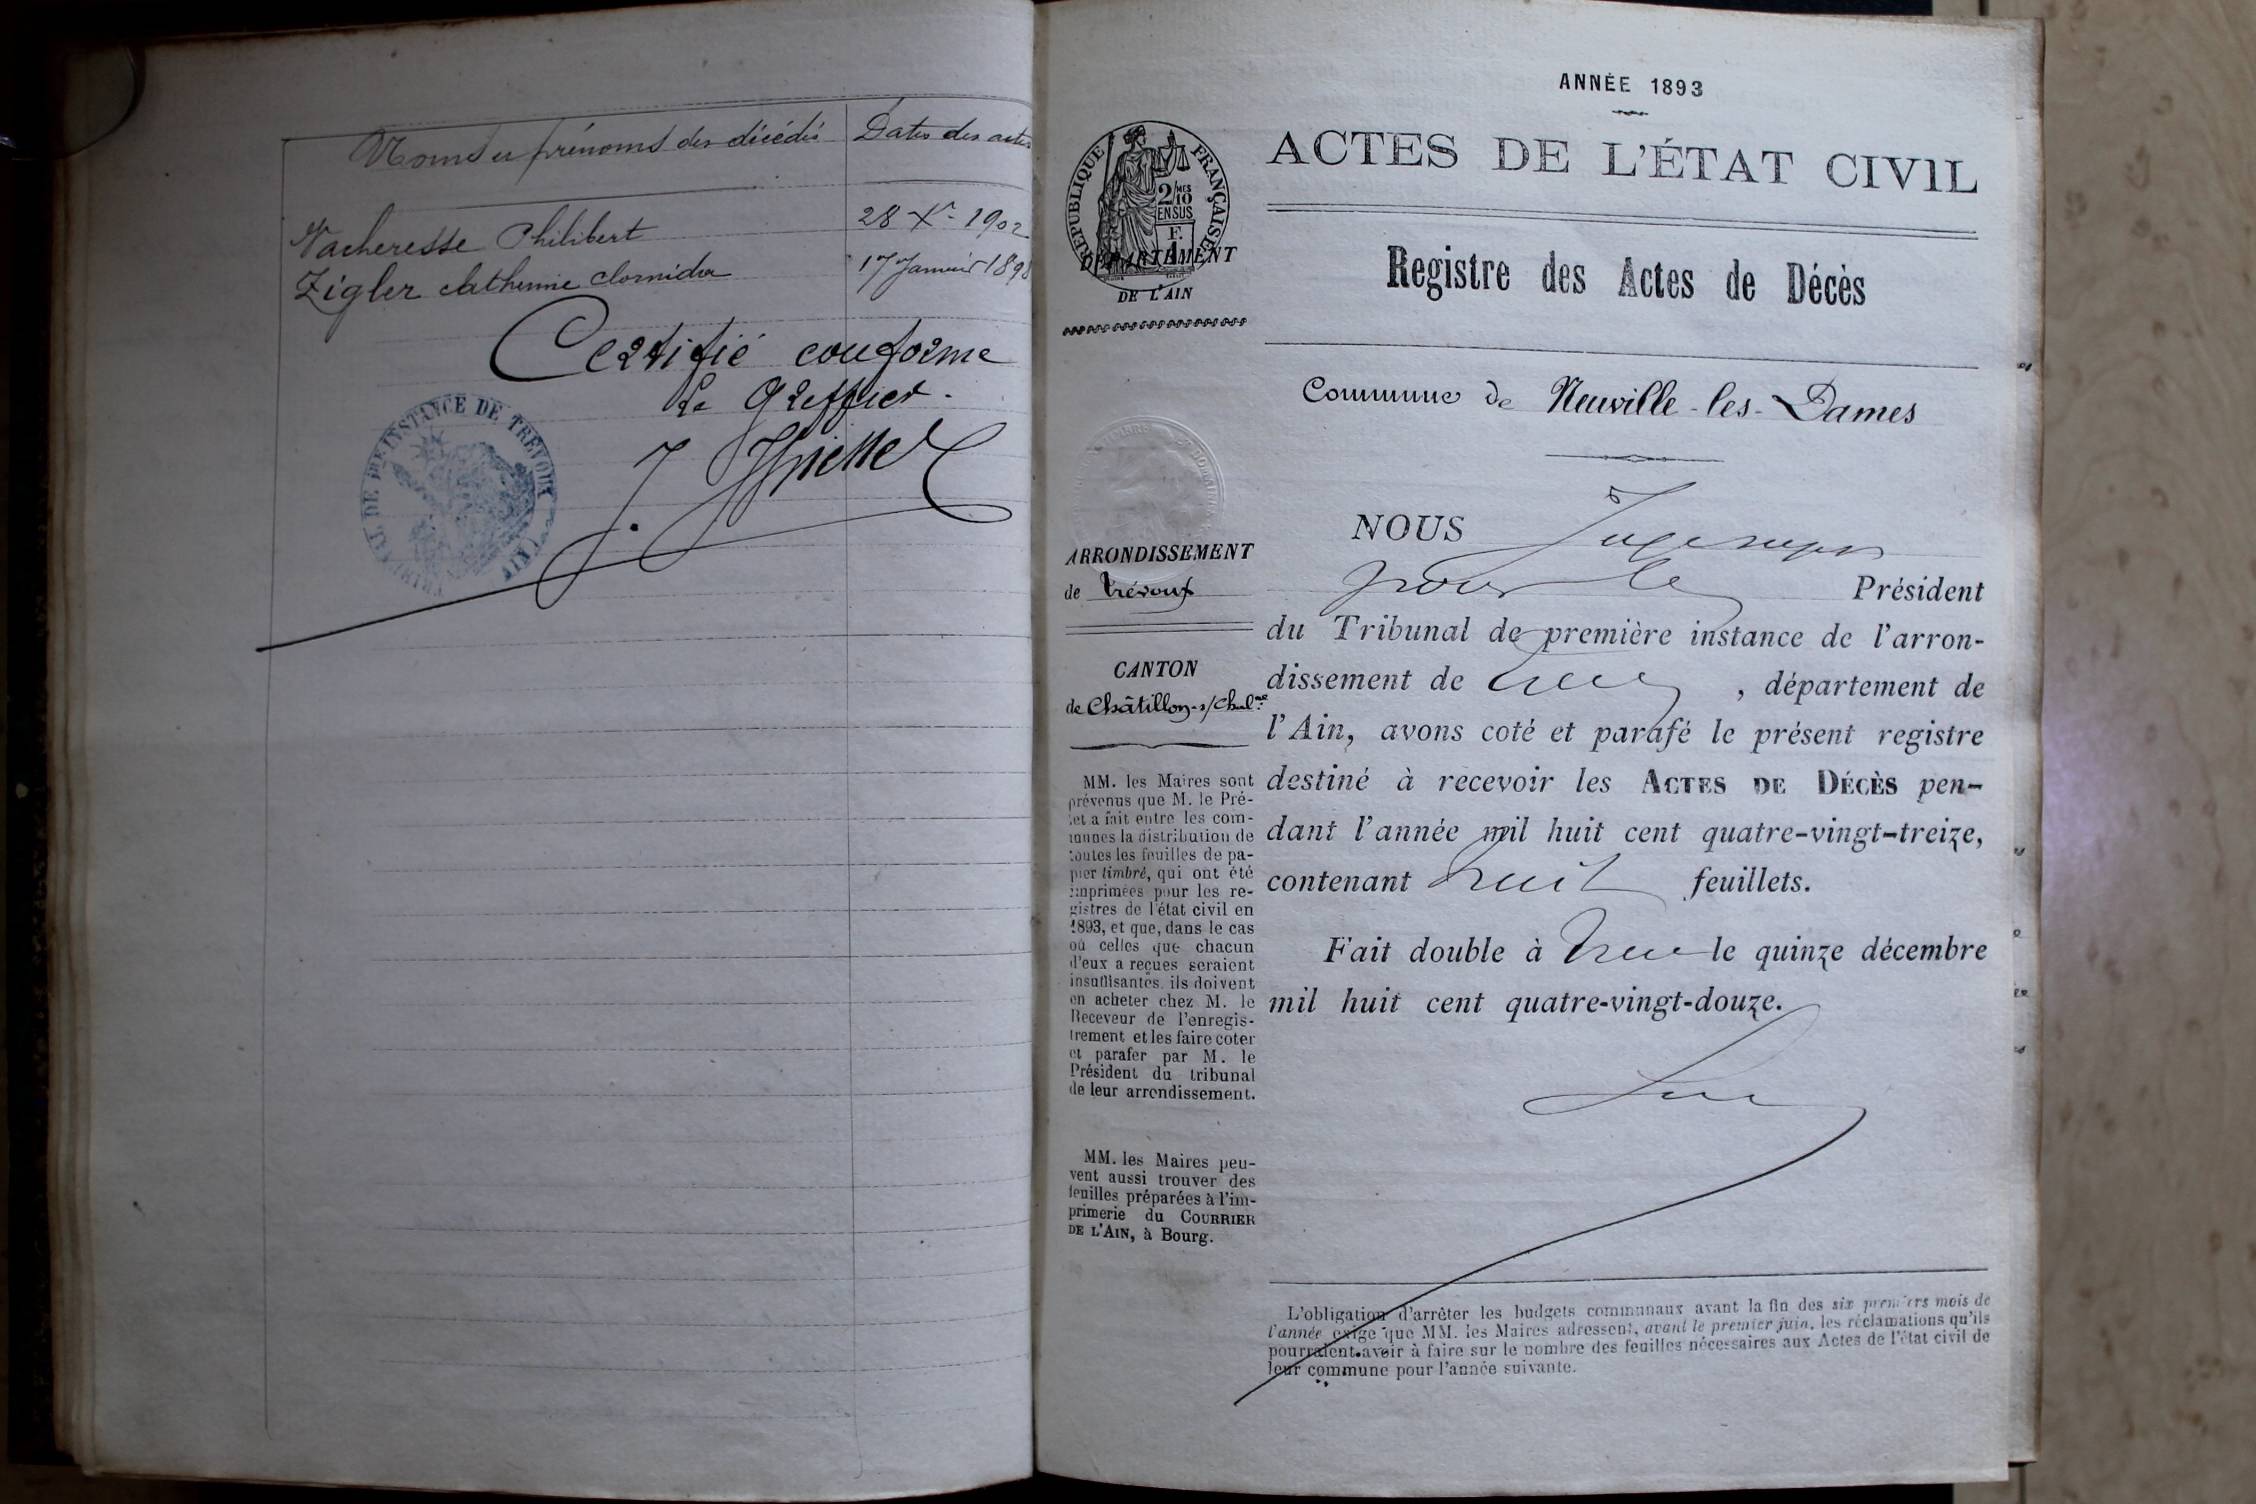 Noms et prénoms des décédés
Dates des actes
Vacheresse Philibert
28 Xre 1902
Zigler Catherine
17 Janvier 189
Certifié conforme
Le Greffier.
TRIBUNAL DE PRE INSTANCE DE TRÉVOUX (AIN)
ANNÉE 1893
ACTES DE L'ÉTAT CIVIL
RÉPUBLIQUE FRANÇAISE
2/10MES
EN SUS
F.
1
DÉPARTEMENT
DE L'AIN
Registre des Actes de Décès
Commune de Neuville-les-Dames
ARRONDISSEMENT
de Trévoux
CANTON
de Châtillon-s/Chal.ne
MM. les Maires sont
prévenus que M. le Pré-
fet a fait entre les com-
munes la distribution de
toutes les feuilles de pa-
pier timbré, qui ont été
imprimées pour les re-
gistres de l'état civil en
1893, et que, dans le cas
où celles que chacun
d'eux a reçues seraient
insuffisantes, ils doivent
en acheter chez M. le
Receveur de l'enregis-
trement et les faire coter
et parafer par M. le
Président du tribunal
de leur arrondissement.
MM. les Maires peu-
vent aussi trouver des
feuilles préparées à l'im-
primerie du COURRIER
DE L'AIN, à Bourg.
NOUS Juge
pour le Président
du Tribunal de première instance de l'arron-
dissement de , département de
l'Ain, avons coté et parafé le présent registre
destiné à recevoir les ACTES DE DÉCÈS pen-
dant l'année mil huit cent quatre-vingt-treize,
contenant huit feuillets.
Fait double à le quinze décembre
mil huit cent quatre-vingt-douze.
L'obligation d'arrêter les budgets communaux avant la fin des six premiers mois de
l'année exige que MM. les Maires adressent, avant le premier juin, les réclamations qu'ils
pourraient avoir à faire sur le nombre des feuilles nécessaires aux Actes de l'état civil de
leur commune pour l'année suivante.